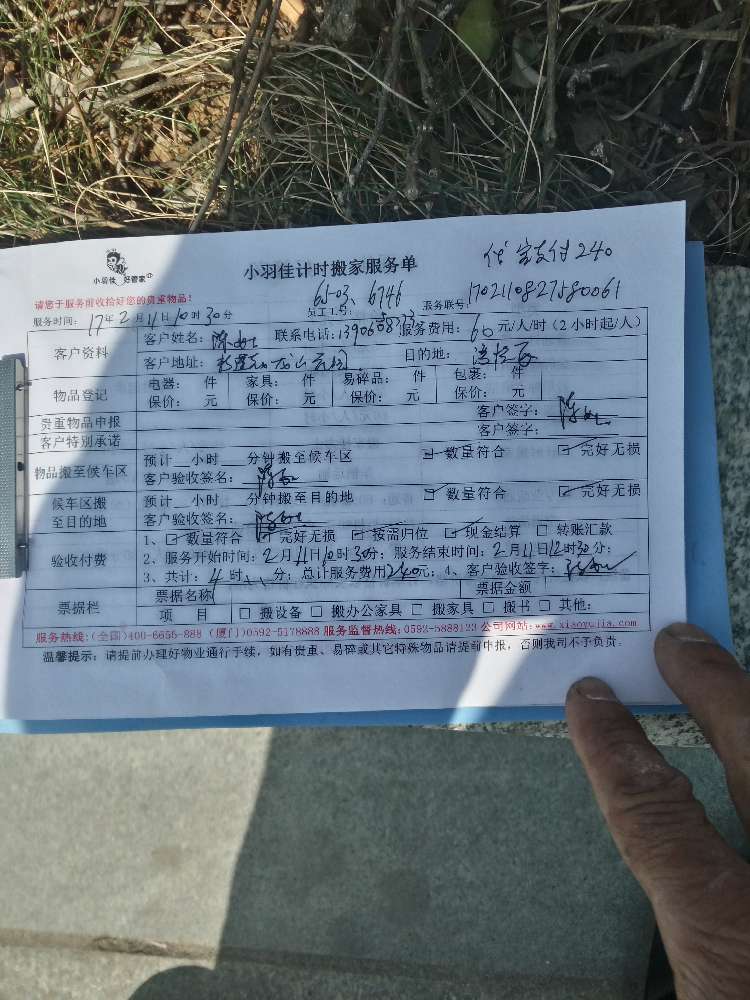 小羽佳 好管家
小羽佳计时搬家服务单
支付240
请您于服务前收拾好您的贵重物品！
服务时间：17年2月11日10时30分
员工工号：6503、6746
服务联号：1702110827580061
客户资料
客户姓名：陈 联系电话： 服务费用：60元/人/时（2小时起/人）
客户地址： 目的地：
物品登记
电器： 件 家具： 件 易碎品： 件 包裹： 件
保价： 元 保价： 元 保价： 元 保价： 元
贵重物品申报 客户签字：
客户特别承诺 客户签字：
物品搬至候车区
预计__小时___分钟搬至候车区 ☑数量符合 ☑完好无损
客户验收签名：
候车区搬至目的地
预计__小时___分钟搬至目的地 ☑数量符合 ☑完好无损
客户验收签名：
验收付费
1、☑数量符合 ☑完好无损 ☑按需归位 ☑现金结算 □转账汇款
2、服务开始时间：2月11日10时30分；服务结束时间：2月11日12时30分；
3、共计：4时 分；总计服务费用240元；4、客户验收签字：
票据栏
票据名称 票据金额
项 目 □搬设备 □搬办公家具 □搬家具 □搬书 □其他：
服务热线：(全国)400-6655-888 (厦门)0592-5178888 服务监督热线：0592-5888123 公司网站：www.xiaoyujia.com
温馨提示：请提前办理好物业通行手续，如有贵重、易碎或其它特殊物品请提前申报，否则我司不予负责。